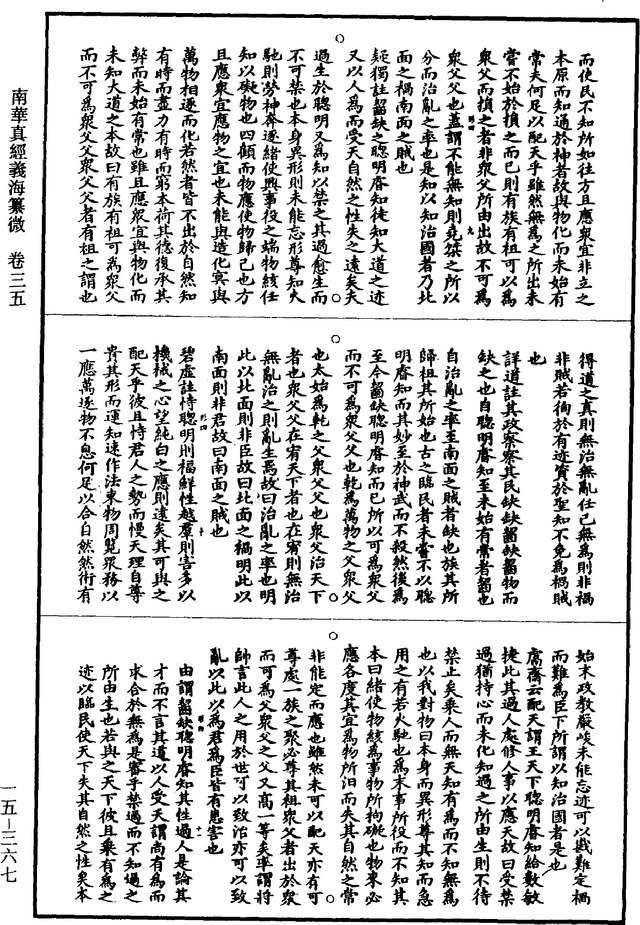 南華真經義海纂微　卷三五
一五—三六七
而使民不知所如往方且應衆宜非立之
本原而知通於神者故與物化而未始有
常夫何足以配天乎雖然無為之所出未
嘗不始於損之而已則有族有祖可以為
衆父而損之者非衆父所由出故不可為
衆父父也蓋謂不能無知則堯桀之所以
分而治亂之率也是知以知治國者乃北
面之禍南面之賊也
疑獨註齧缺之聰明睿知徒知大道之迹
又以人為而受天自然之性失之遠矣夫
過生於聰明又為知以禁之其過愈生而
不可禁也本身異形則未能忘形尊知火
馳則勞神奔逐緒使興事役之端物絃任
知以礙物也四顧而物應使物歸己也方
且應衆宜應物之宜也未能與造化冥與
萬物相逐而化若然者皆不出於自然知
有時而盡力有時而窮本荷其德復承其
弊而未始有常也雖且應衆宜與物化而
未知大道之本故曰有族有祖可為衆父
而不可為衆父父衆父父者有祖之謂也
得道之真則無治無亂任己無為則非禍
非賊若徇於有迹實於聖知不免為禍賊
也
詳道註其政察察其民缺缺齧缺齧物而
缺之也自聰明睿知至未始有常者齧也
自治亂之率至南面之賊者缺也族其所
歸祖其所始也古之臨民者未嘗不以聰
明睿知而其妙至於神武而不殺然後為
至今齧缺聰明睿知而已所以可為衆父
而不可為衆父父也乾為萬物之父衆父
也太始為乾之父衆父父也衆父治天下
者也衆父父在宥天下者也在宥則無治
無亂治之則亂生焉故曰治亂之率也明
此以北面則非臣故曰北面之禍明此以
南面則非君故曰南面之賊也
碧虛註恃聰明則福鮮性越羣則害多以
機械之心望純白之應則遠矣其可與之
配天乎彼且恃君人之勢而慢天理自尊
貴其形而運知速作法束物周覽衆務以
一應萬逐物不息何足以合自然然術有
始末政教嚴峻未能忘迹可以戡難定禍
而難為臣下所謂以知治國者是也
鬳齋云配天謂王天下聰明睿知給數敏
捷此其過人處修人事以應天故曰受禁
過猶持心而未化知過之所由生則不待
禁止矣乘人而無天知有為而不知無為
也以我對物曰本身而異形尊其知而急
用之有若火馳也為末事所役而不知其
本曰緒使物絃為事物所拘礙也物來必
應各度其宜為物所汨而失其自然之常
非能定而應也雖然未可以配天亦有可
尊處一族之聚必尊其祖衆父者出於衆
而可為父衆父之父又高一等矣率謂將
帥言此人之用於世可以致治亦可以致
亂以此以為君為臣皆有患害也
由謂齧缺聰明睿知其性過人是論其
才而不言其道以人受天謂尚有為而
求合於無為是審乎禁過而不知過之
所由生也若與之天下彼且乘有為之
迹以臨民使天下失其自然之性矣本